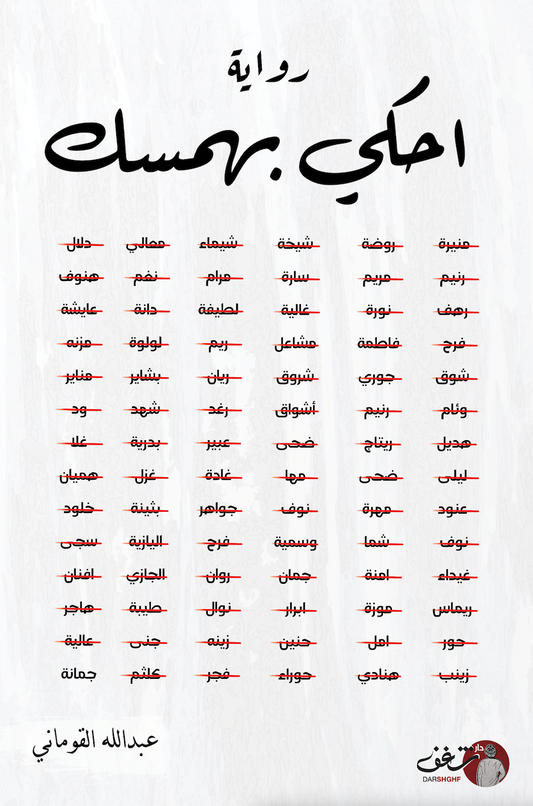 رواية
احكي بهمسك
منيرة روضة شيخة شيماء معالي دلال
رنيم مريم سارة مرام نغم هنوف
رهف نورة غالية لطيفة دانة عايشة
فرح فاطمة مشاعل ريم لولوة مزنه
شوق جوري شروق ريان بشاير مناير
وئام رنيم أشواق رغد شهد ود
هديل ريتاج ضحى عبير بدرية غلا
ليلى ضحى مها غادة غزل هميان
عنود مهرة نوف جواهر بثينة خلود
نوف شما وسمية فرح اليازية سجى
غيداء امنة جمان روان الجازي افنان
ريماس موزة ابرار نوال طيبة هاجر
حور امل حنين زينه جنى عالية
زينب هنادي حوراء فجر كلثم جمانة
عبدالله القوماني
دار شغف
DARSHGHF